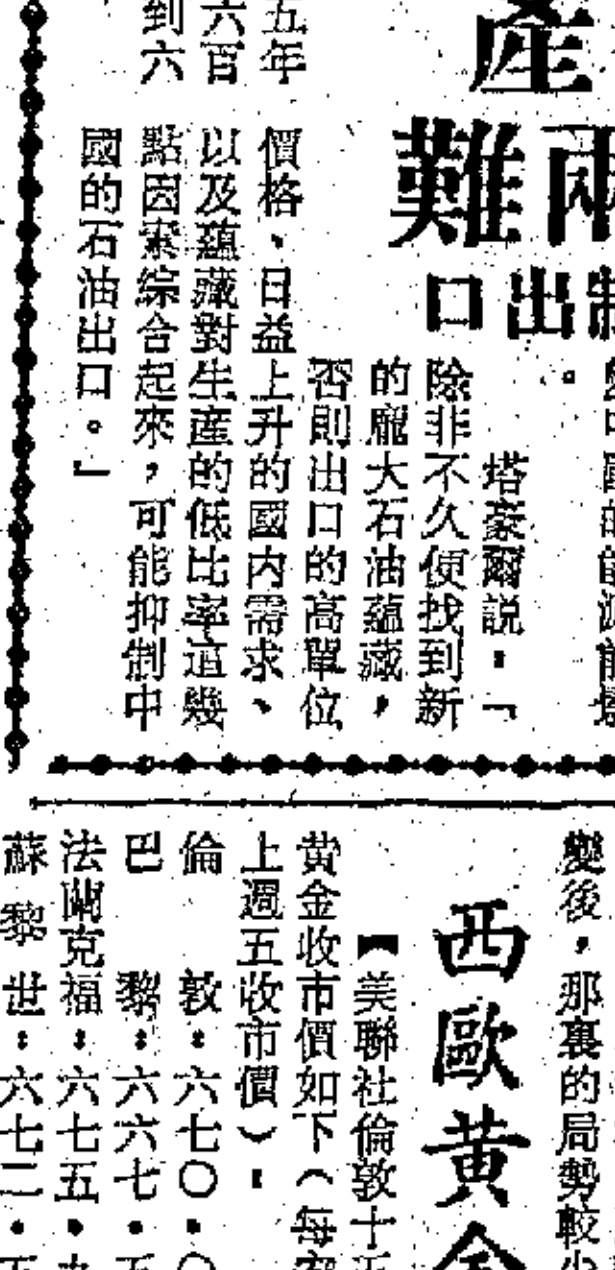 產
兩難
制出口
塔豪爾説:「
除非不久便找到新
的龐大石油蘊藏,
否則出口的高單位
價格、日益上升的國內需求、
以及蘊藏對生產的低比率這幾
點因素綜合起來,可能抑制中
國的石油出口。」
五年
六百
到六
變後,那裏的局勢較
西歐黃金
【美聯社倫敦十五
黃金收市價如下(每
上週五收市價):
倫敦:六七〇.〇
巴黎:六六七.五
法蘭克福:六七五.
蘇黎世:六七二.五